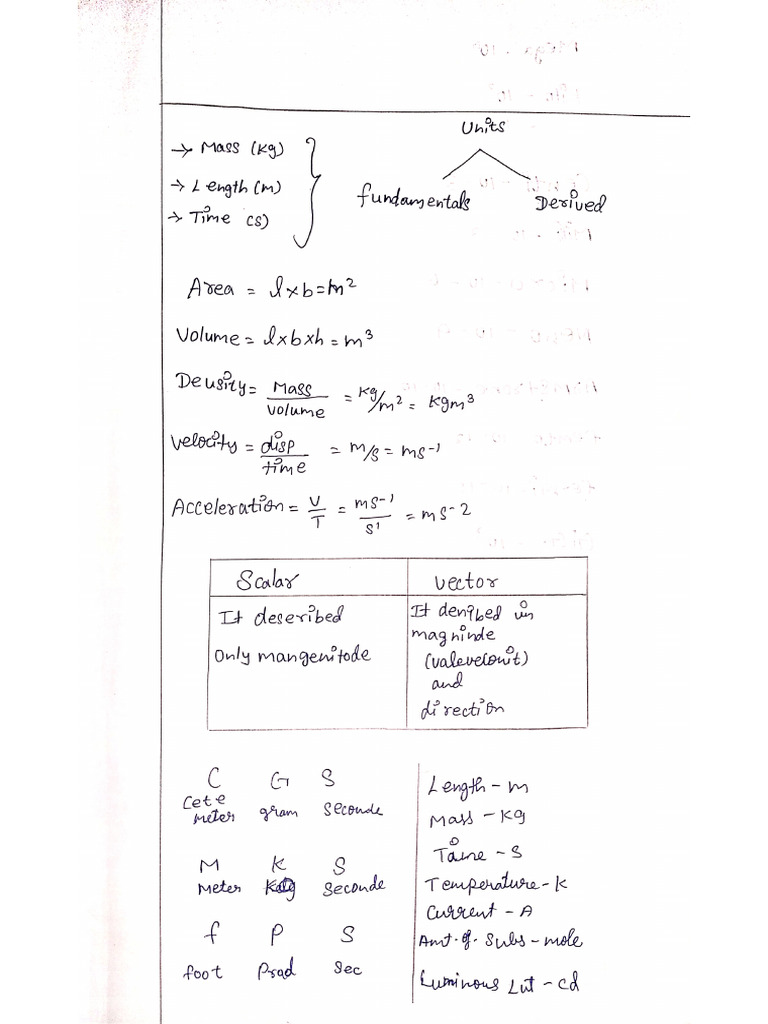 Units
→ Mass (Kg)
→ Length (m)
→ Time (s)
fundamentals Derived
Area = l×b = m²
Volume = l×b×h = m³
Deusity = Mass / volume = kg/m² = kgm³
velocity = disp / time = m/s = ms⁻¹
Acceleration = V / T = ms⁻¹ / s¹ = ms-2
Scalar
vector
It deseribed
Only mangenitode
It denibed in
magninde
(valeve(onit)
and
direction
C G S
Cete
meter gram Seconde
M K S
Meter Seconde
f P S
foot Prad Sec
Length - m
Mass - Kg
Taine - S
Temperature - K
Current - A
Amt. of. Subs - mole
Luminous Lut - cd